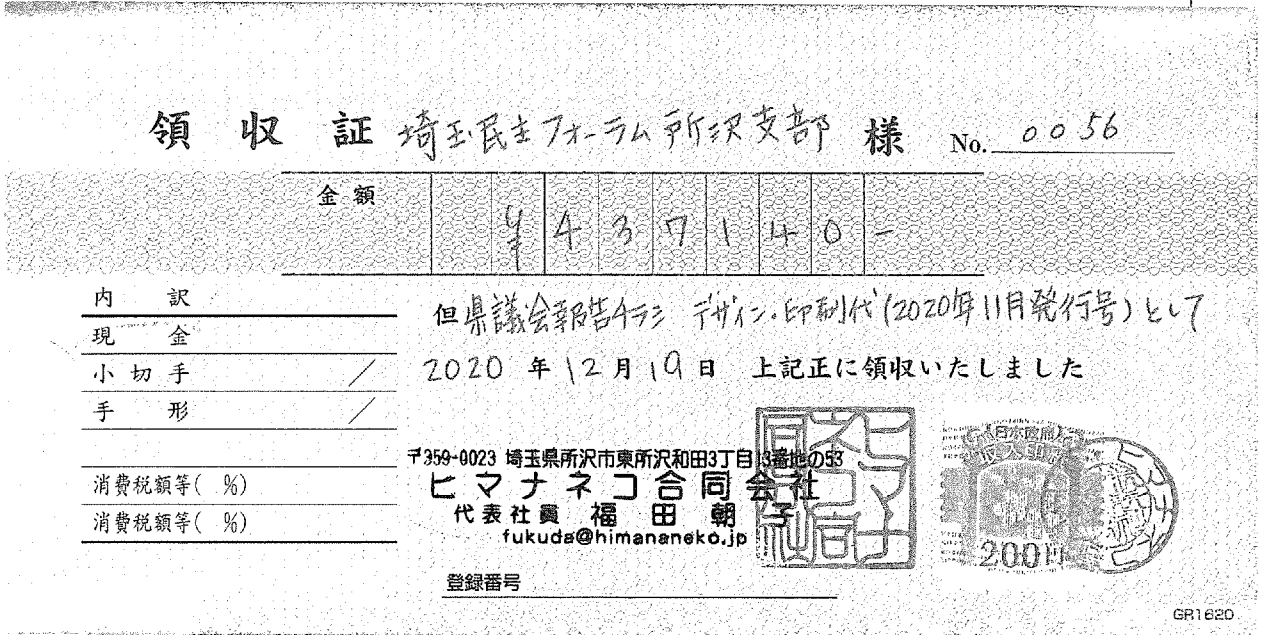 領 収 証 埼玉民主フォーラム所沢支部 様 No. 0056
金額 ¥437140-
内 訳
現 金
小切手 /
手 形 /
消費税額等( %)
消費税額等( %)
但県議会報告チラシ デザイン・印刷代(2020年11月発行号)として
2020 年 12 月 19 日 上記正に領収いたしました
〒359-0023 埼玉県所沢市東所沢和田3丁目13番地の53
ヒマナネコ合同会社
代表社員 福田朝子
fukuda@himananeko.jp
登録番号
ヒマナネコ合同会社
日本政府
収入印紙
200円
GR1620